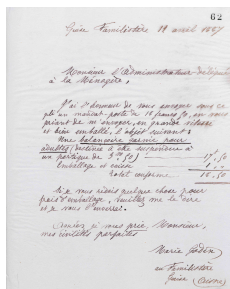 62
Guise Familistère 19 avril 1887
Monsieur l'Administrateur délégué
à la Ménagère,
J'ai l'honneur de vous envoyer sous ce
pli un mandat-poste de 18 francs 50, en vous
priant de m'envoyer, en grande vitesse
et bien emballé, l'objet suivant :
Une balançoire sabot pour
adultes (destinée à être suspendue à
un portique de 3m50)
Emballage et caisse
Total conforme 18.50
Si je vous dois quelque chose pour
frais d'emballage, veuillez me le dire
et je vous l'enverrai.
Agréez, je vous prie, Monsieur,
mes civilités parfaites
Marie Godin
au Familistère
Guise (Aisne)